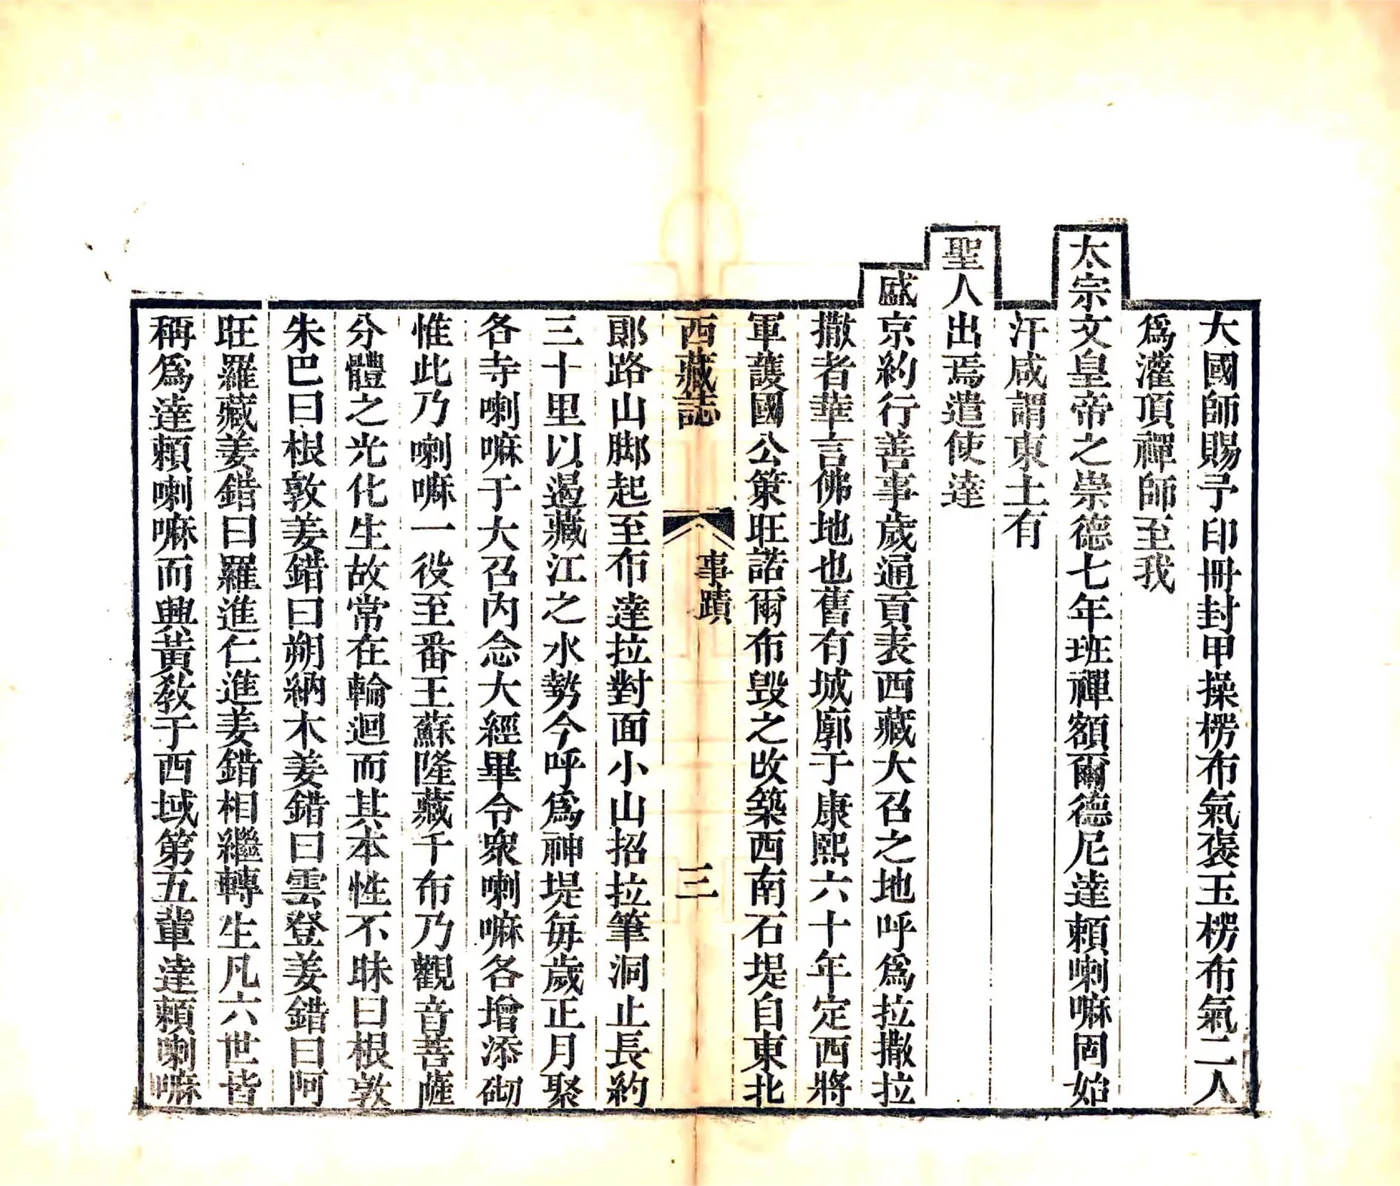 大國師賜予印冊封甲操楞布氣褒玉楞布氣二人
爲灌頂禪師至我
太宗文皇帝之崇德七年班禪額爾德尼達賴喇嘛固始
汗咸謂東土有
聖人出焉遣使達
盛京約行善事歲通貢表西藏大召之地呼爲拉撒拉
撒者華言佛地也舊有城廓于康熙六十年定西將
軍護國公策旺諾爾布毀之改築西南石堤自東北
西藏誌
事蹟
三
郞路山脚起至布達拉對面小山招拉筆洞止長約
三十里以遏藏江之水勢今呼爲神堤每歲正月聚
各寺喇嘛于大召內念大經畢令衆喇嘛各增添砌
惟此乃喇嘛一役至番王蘇隆藏千布乃觀音菩薩
分體之光化生故常在輪迴而其本性不昧曰根敦
朱巴曰根敦姜錯曰朔納木姜錯曰雲登姜錯曰阿
旺羅藏姜錯曰羅進仁進姜錯相繼轉生凡六世皆
稱爲達賴喇嘛而興黃敎于西域第五輩達賴喇嘛